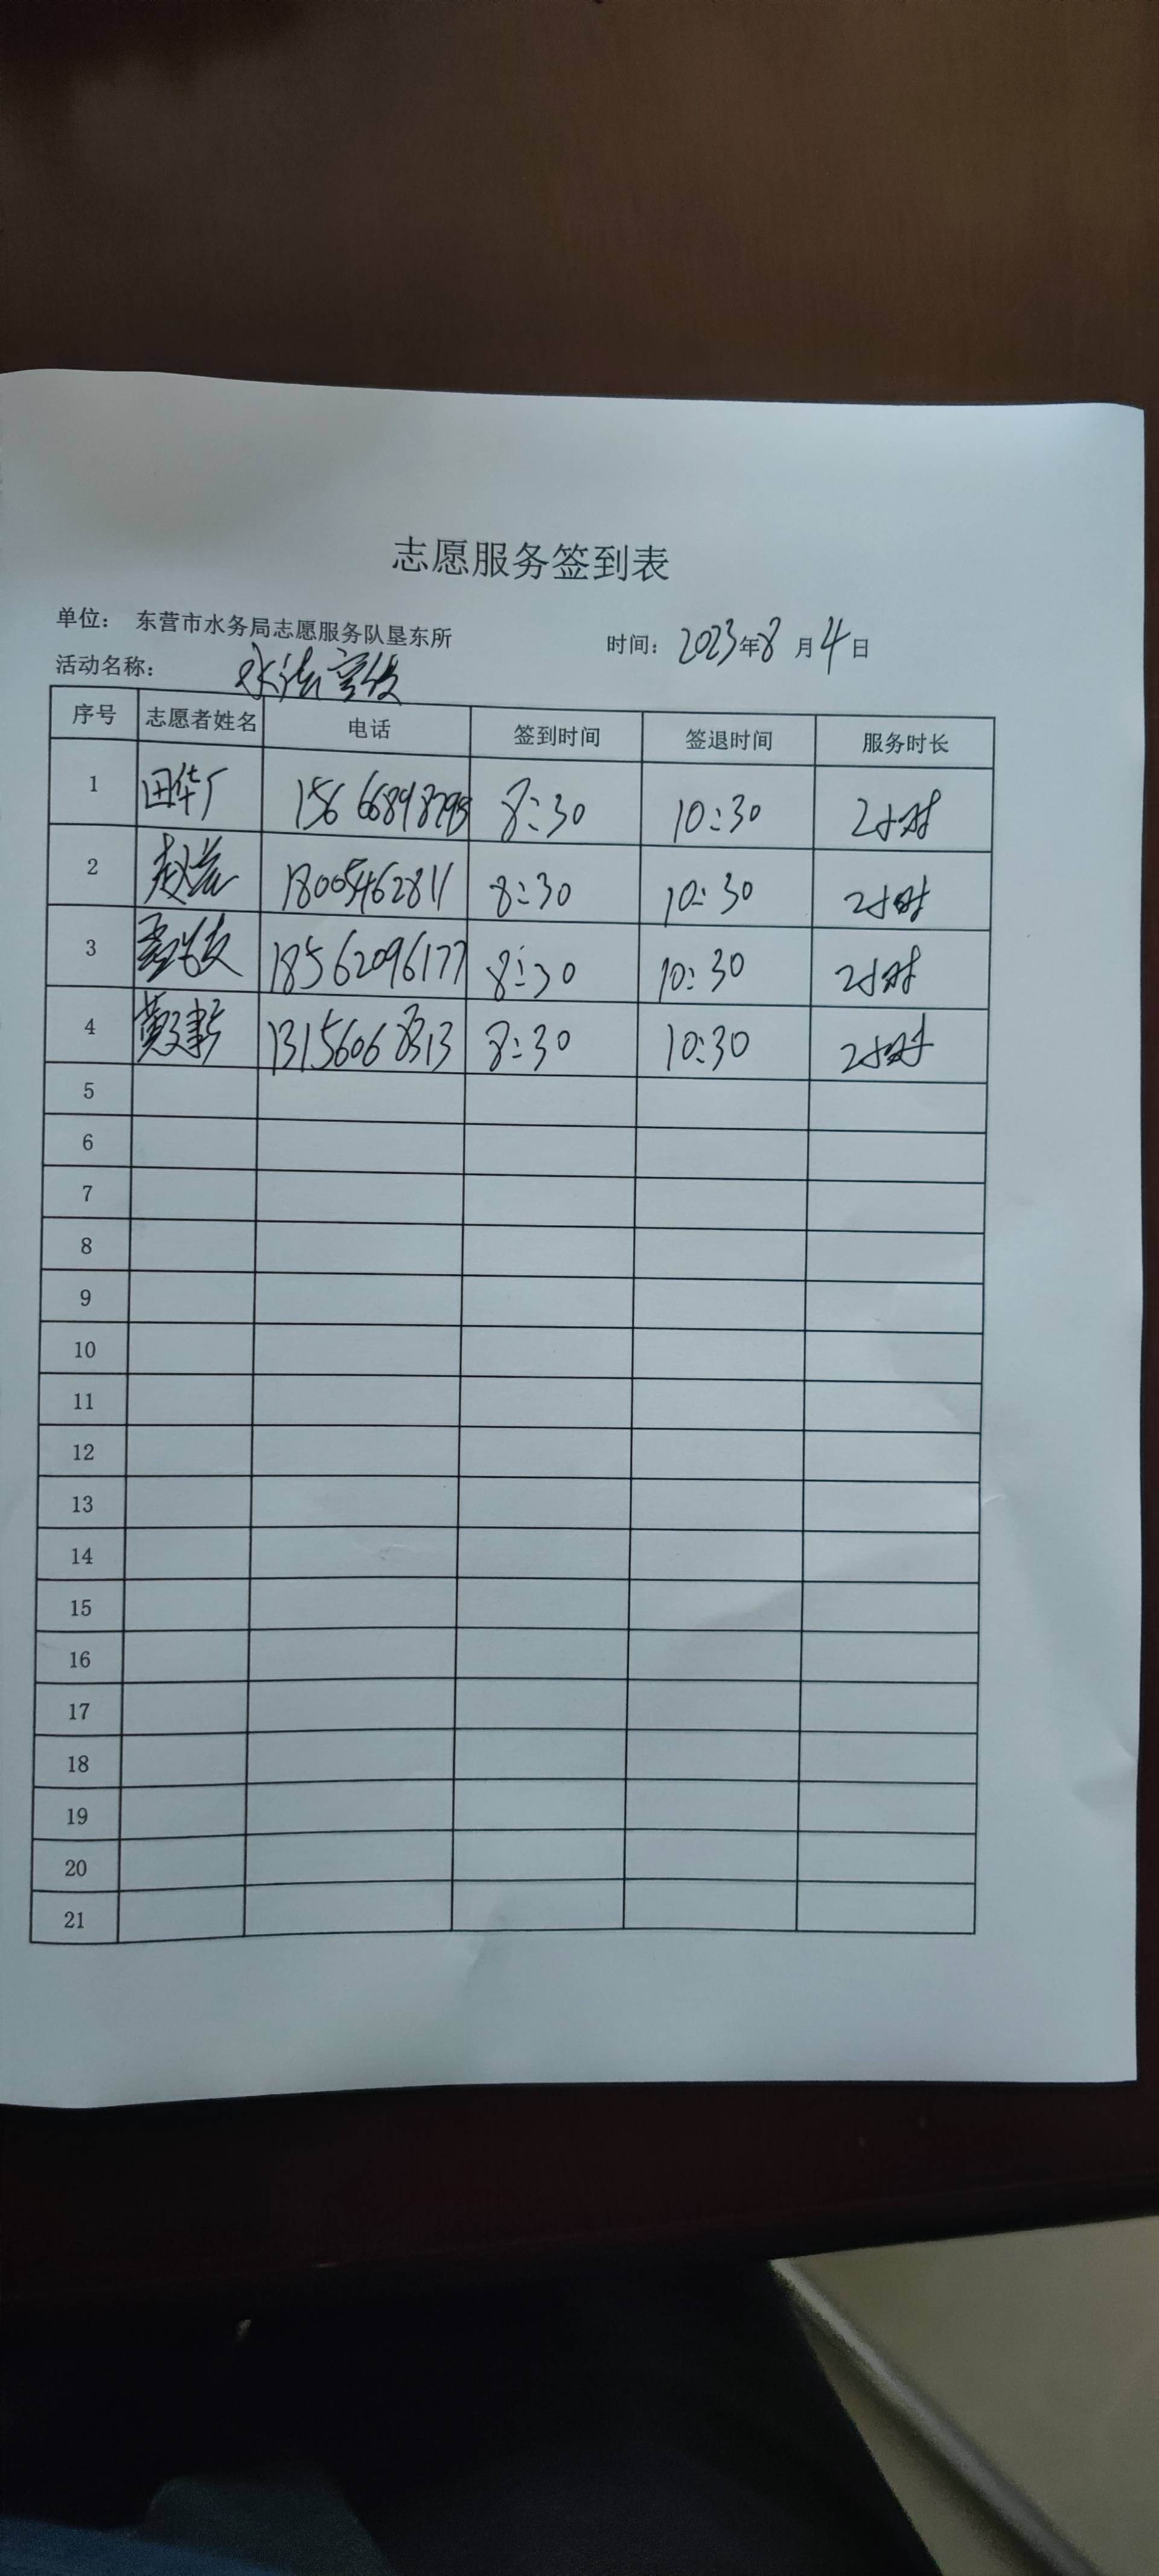 志愿服务签到表
单位： 东营市水务局志愿服务队垦东所 时间：2023年8月4日
活动名称： 水法宣传
序号 志愿者姓名 电话 签到时间 签退时间 服务时长
1 田华厂 8:30 10:30 2小时
2 18005462811 8:30 10:30 2小时
3 18562096177 8:30 10:30 2小时
4 13156068313 8:30 10:30 2小时
5
6
7
8
9
10
11
12
13
14
15
16
17
18
19
20
21